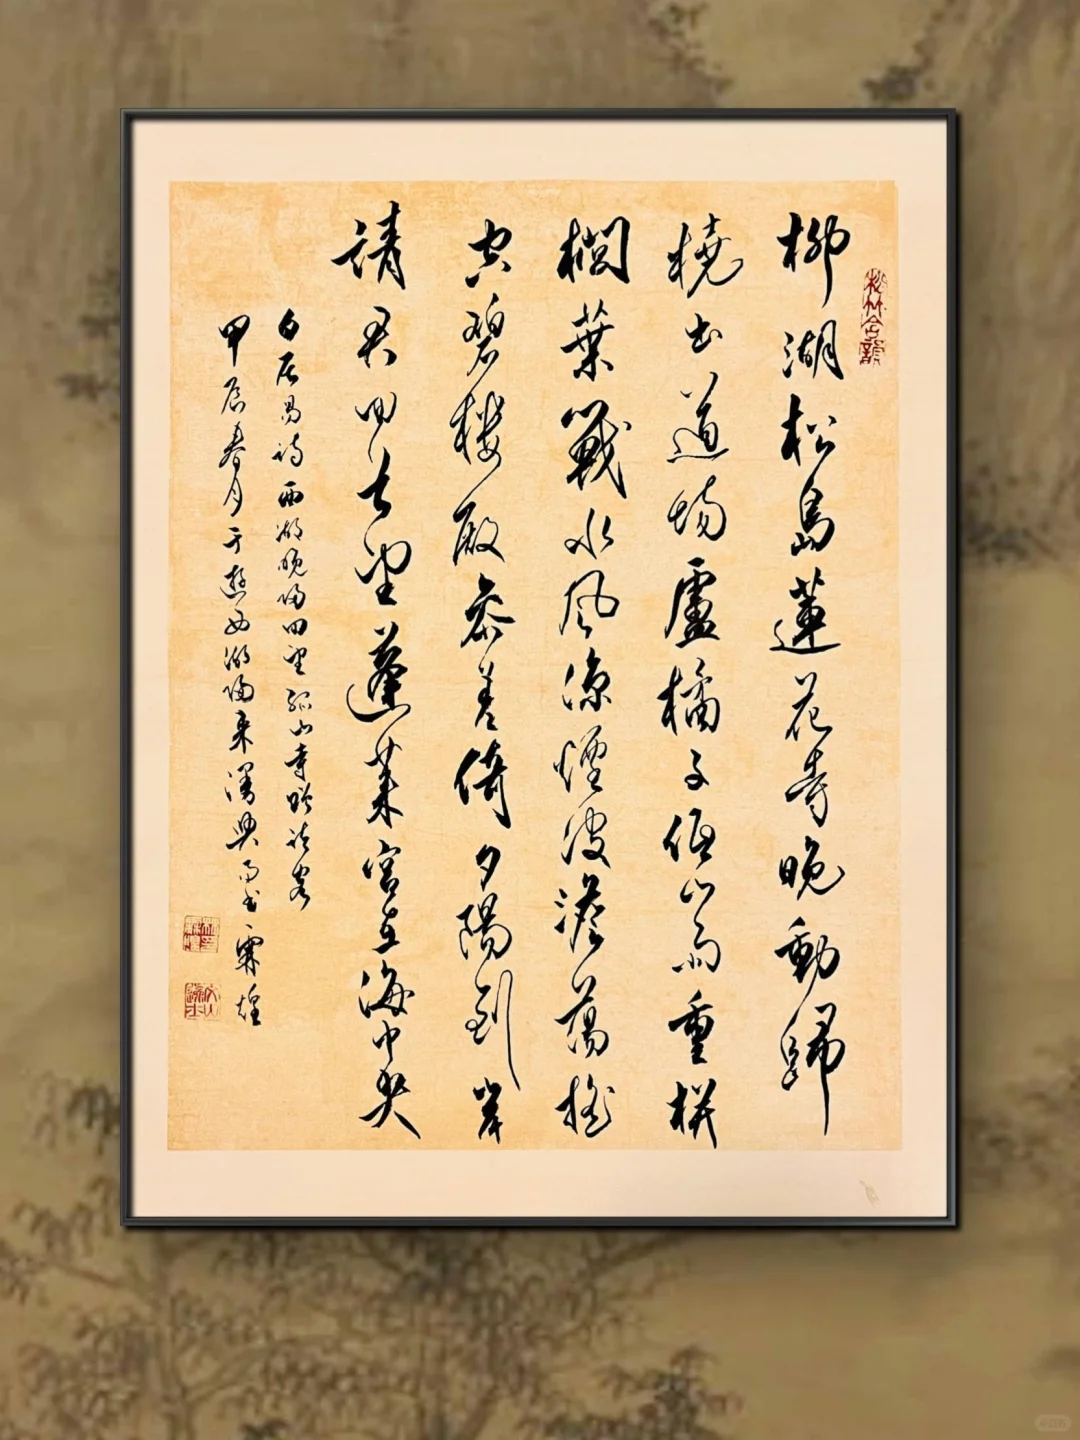 柳湖松島蓮花寺晚動歸
橈出道場盧橘子低山雨重栟
櫚葉戰水風涼煙波澹蕩搖
空碧樓殿參差倚夕陽到岸
請君回首望蓬萊宮在海中央
白居易詩西湖晚歸回望孤山寺贈諸客
甲辰春月于遊西湖歸來漫興而書 霖煌